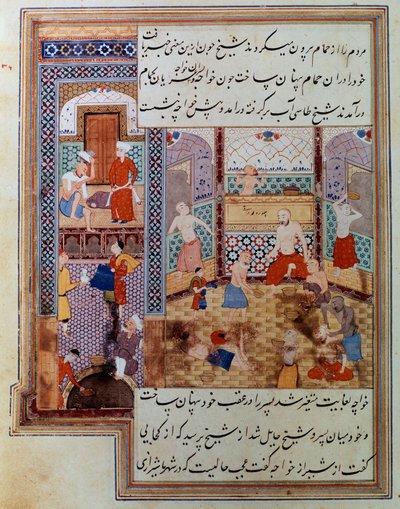 مردم را از حمام بیرون میکردند شیخ چون ازین معنی خبر یافت
خود را در آن حمام پنهان ساخت چون خواجه
درآمدند شیخ طاسی آب برگرفته درآمد و پیش خواجه نشست
خواجه بغایت متغیر شد پسر را در عقب خود پنهان ساخت
و خود میان پسر و شیخ حایل شد از شیخ پرسید که از کجایی
گفت از شیراز خواجه گفت عجب حالیست که در شهر ما شیرازی